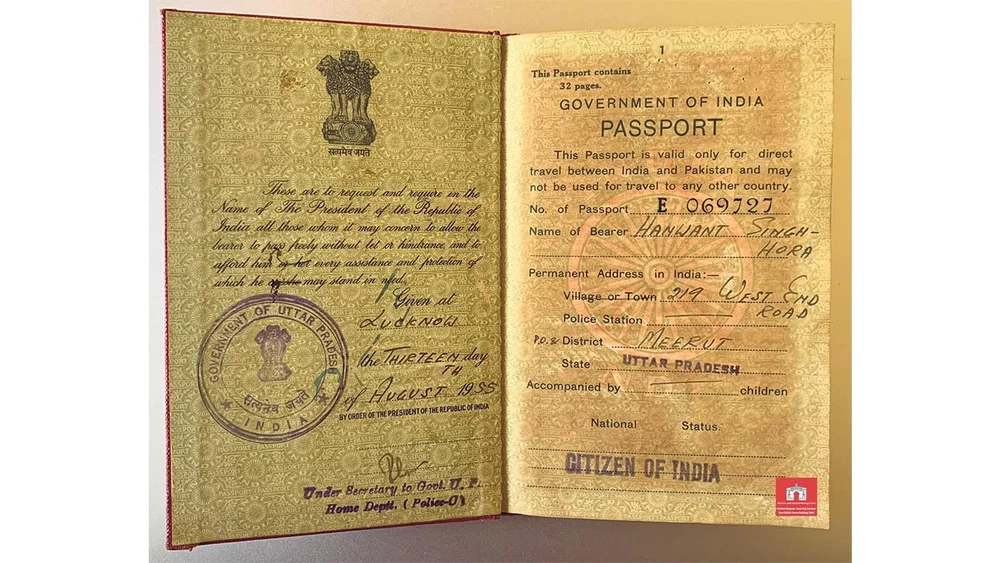 सत्यमेव जयते
These are to request and require in the
Name of The President of the Republic of
India all those whom it may concern to allow the
bearer to pass freely without let or hindrance, and to
afford him or her every assistance and protection of
which he may stand in need.
Given at
LUCKNOW
the THIRTEEN day
TH
of AUGUST 1955
BY ORDER OF THE PRESIDENT OF THE REPUBLIC OF INDIA
GOVERNMENT OF UTTAR PRADESH
सत्यमेव जयते
INDIA
Under Secretary to Govt. U. P.
Home Deptt. (Police-C)
1
This Passport contains
32 pages.
GOVERNMENT OF INDIA
PASSPORT
This Passport is valid only for direct
travel between India and Pakistan and may
not be used for travel to any other country.
No. of Passport E 069727
Name of Bearer HANWANT SINGH-
HORA
Permanent Address in India:—
Village or Town 219 WEST END
ROAD
Police Station
P.O. & District MEERUT
State UTTAR PRADESH
Accompanied by children
National Status.
CITIZEN OF INDIA